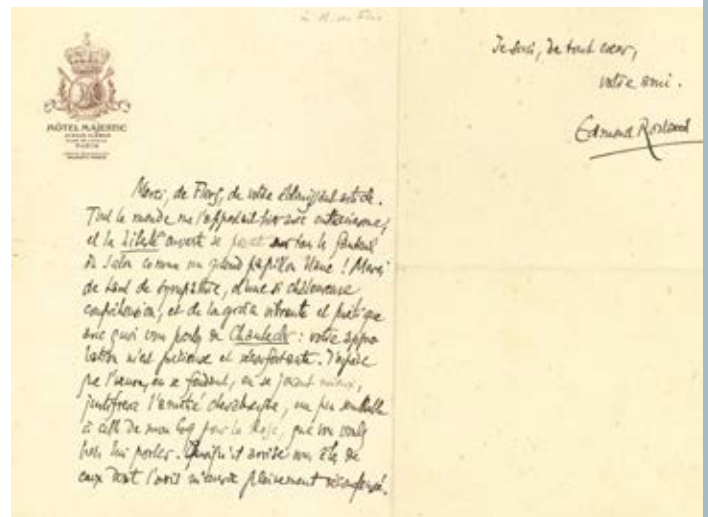 à M. de Flers
HÔTEL MAJESTIC
PARIS
Merci, de Flers, de votre article.
Tout le monde me l'apportait hier avec enthousiasme,
et la Liberté ouverte se posait sur tous les fauteuils
du salon comme un grand papillon blanc ! Merci
de tant de sympathie, d'une si chaleureuse
compréhension, et de la grâce vibrante et poétique
avec quoi vous parlez de Chantecler : votre appro
bation m'est précieuse et réconfortante. J'espère
que l'œuvre, en se fondant, en se jouant mieux,
justifiera l'amitié, un peu semblable
à celle de mon Coq pour la Rose, que vous voulez
bien lui porter. Quoiqu'il arrive vous êtes de
ceux dont l'avis m'aura pleinement récompensé.
Je suis, de tout cœur,
votre ami.
Edmond Rostand